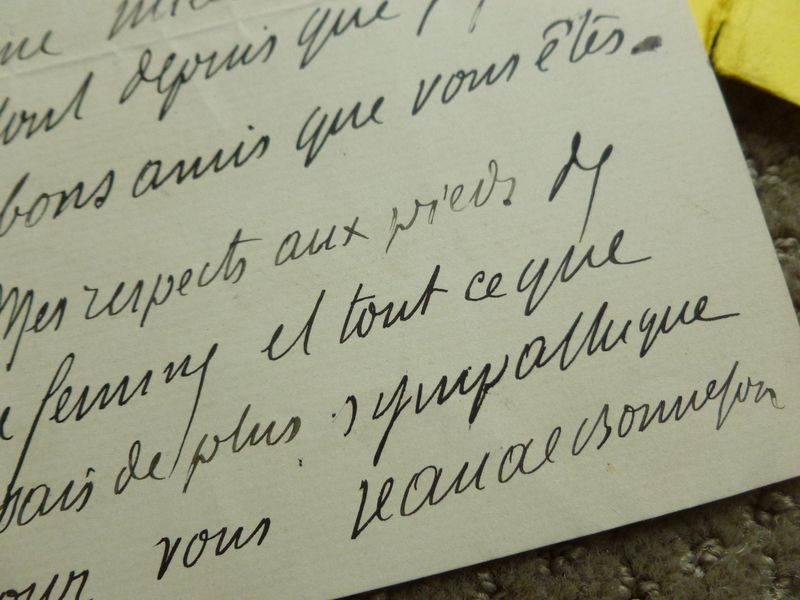 dont depuis que
bons amis que vous êtes.
Mes respects aux pieds de
femme et tout ce que
sais de plus sympathique
pour vous Jean de Bonnefon